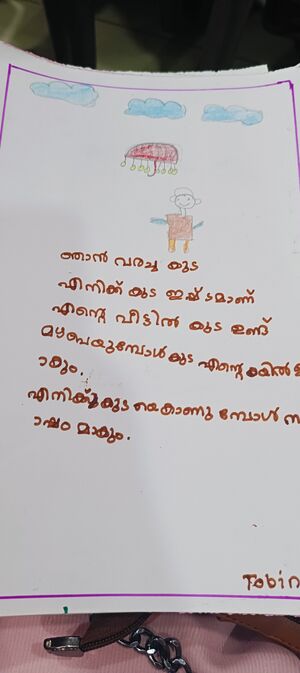 ഞാൻ വരച്ച കുട
എനിക്ക് കുട ഇഷ്ടമാണ്
എന്റെ വീട്ടിൽ കുട ഉണ്ട്
മഴപെയുമ്പോൾ കുട എന്റെ കയിൽ ഉ
ാകും.
എനിക്കുകുട കൊണു മ്പോൾ സ
ാഷം മാകും.
Tobin